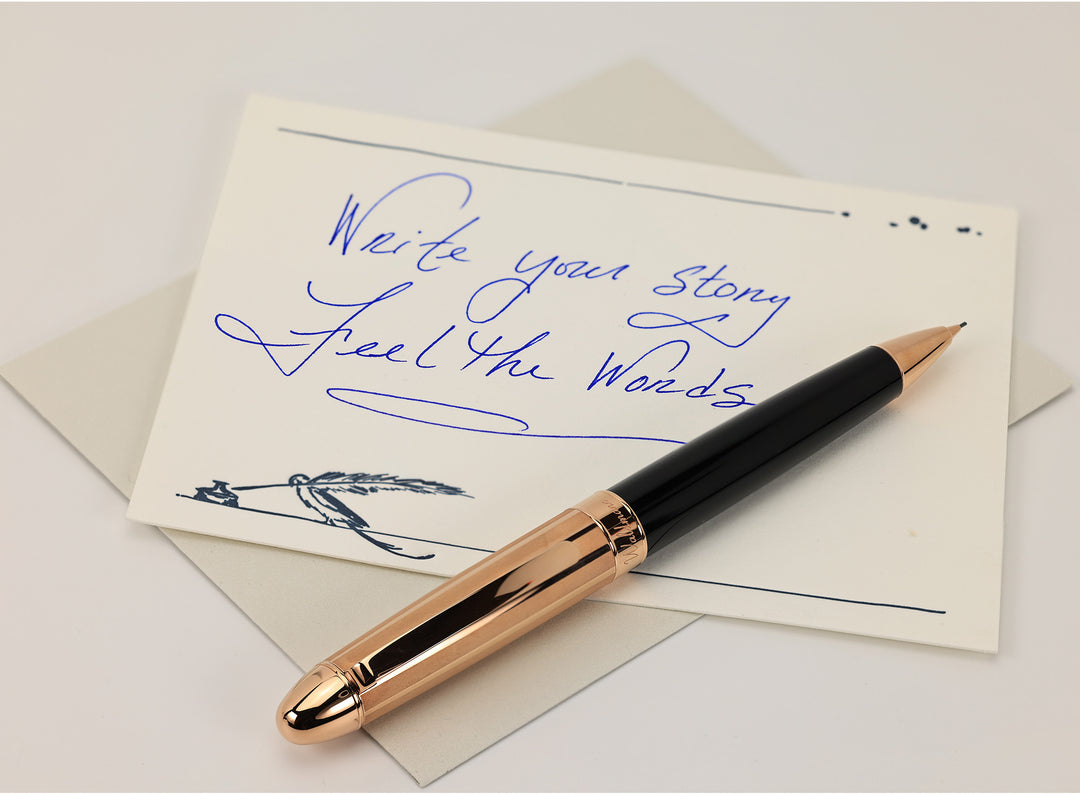 Write your Story
Feel the Words
Waldmann